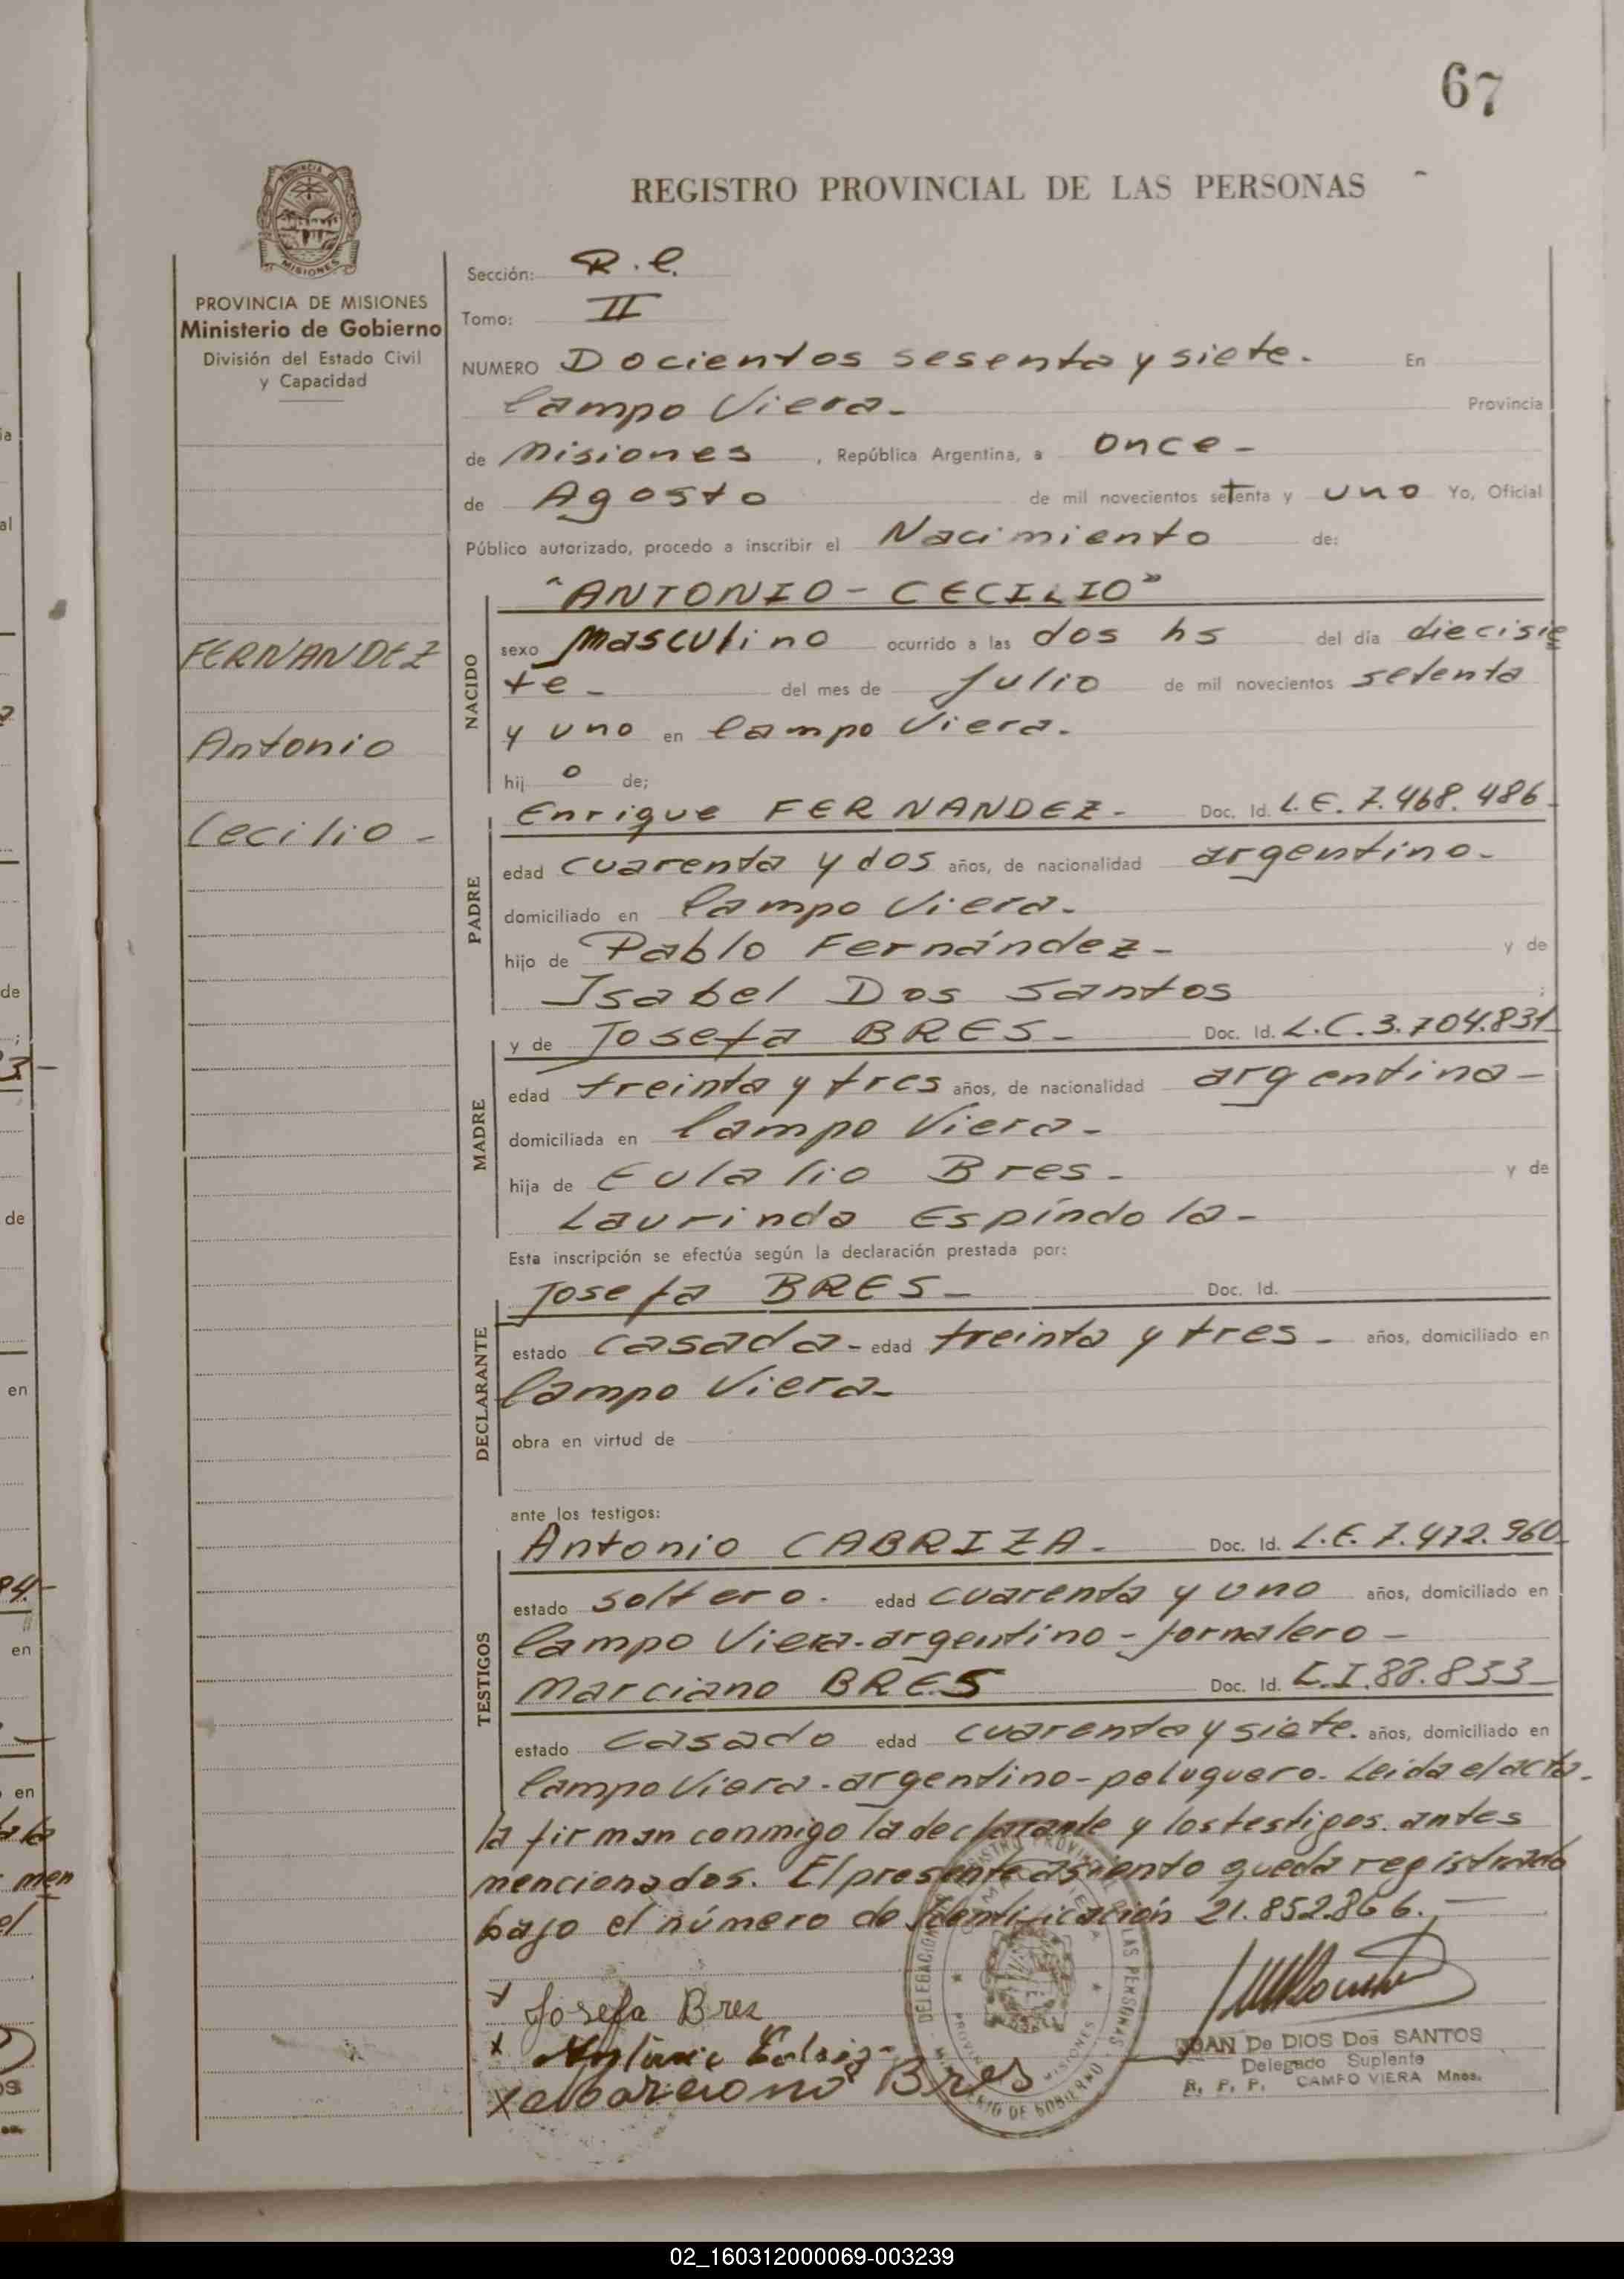 67
REGISTRO PROVINCIAL DE LAS PERSONAS
PROVINCIA DE
MISIONES
PROVINCIA DE MISIONES
Ministerio de Gobierno
División del Estado Civil
y Capacidad
FERNANDEZ
Antonio
Cecilio -
Sección: R.C.
Tomo: II
NUMERO Docientos sesenta y siete. En
Campo Viera - Provincia
de Misiones, República Argentina, a once -
de Agosto de mil novecientos setenta y uno Yo, Oficial
Público autorizado, procedo a inscribir el Nacimiento de:
"ANTONIO - CECILIO"
NACIDO
sexo masculino ocurrido a las dos hs del día diecisie
te - del mes de Julio de mil novecientos setenta
y uno en Campo Viera.
hij o de;
PADRE
Enrique FERNANDEZ - Doc. Id. L.E. 7.468.486
edad cuarenta y dos años, de nacionalidad argentino -
domiciliado en Campo Viera -
hijo de Pablo Fernández - y de
Isabel Dos Santos ;
MADRE
y de Josefa BRES - Doc. Id. L.C. 3.704.831
edad treinta y tres años, de nacionalidad argentina -
domiciliada en Campo Viera -
hija de Eulalio Bres - y de
Laurinda Espíndola -
Esta inscripción se efectúa según la declaración prestada por:
DECLARANTE
Josefa BRES - Doc. Id.
estado casada - edad treinta y tres - años, domiciliado en
Campo Viera -
obra en virtud de
ante los testigos:
TESTIGOS
Antonio CABRIZA - Doc. Id. L.E. 7.472.960
estado soltero. edad cuarenta y uno años, domiciliado en
Campo Viera - argentino - jornalero -
Marciano BRES Doc. Id. C.I. 88.833
estado casado edad cuarenta y siete. años, domiciliado en
Campo Viera - argentino - peluquero - Leida el acta -
la firman conmigo la declarante y los testigos. antes
mencionados. El presente asiento queda registrado
bajo el número de identificación 21.852.866. -
x Josefa Bres
x
x Bres
JUAN De DIOS Dos SANTOS
Delegado Suplente
R. P. P. CAMPO VIERA Mnes.
02_160312000069-003239